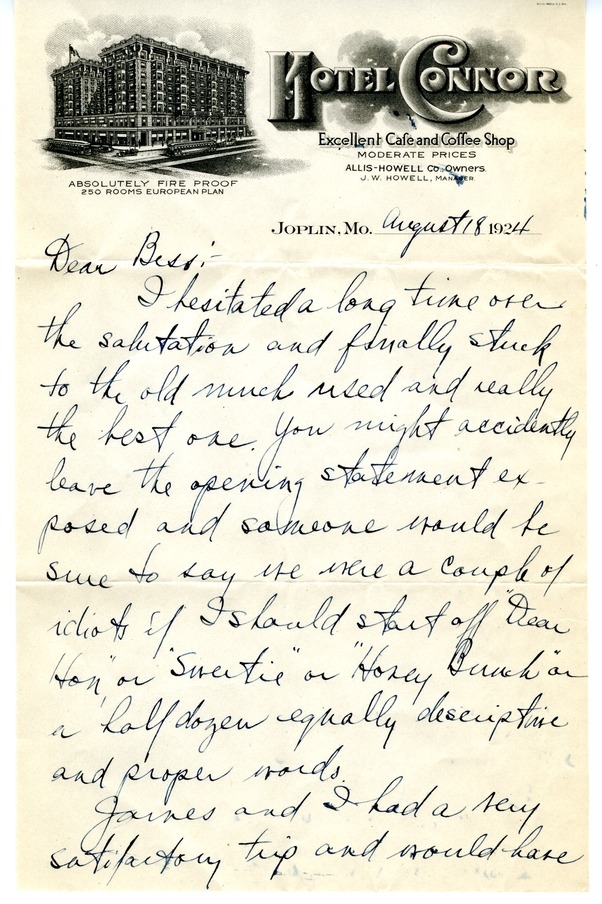 HOTEL CONNOR
Excellent Cafe and Coffee Shop
MODERATE PRICES
ALLIS-HOWELL Co. Owners.
J. W. HOWELL, MANAGER.
ABSOLUTELY FIRE PROOF
250 ROOMS EUROPEAN PLAN
JOPLIN, MO. August 18 1924
Dear Bess:-
I hesitated a long time over
the salutation and finally stuck
to the old much used and really
the best one. You might accidently
leave the opening statement ex-
posed and someone would be
sure to say we were a couple of
idiots if I should start off "Dear
Hon" or "Sweetie" or "Honey Bunch" or
a half dozen equally descriptive
and proper words.
James and I had a very
satisfactory trip and would have